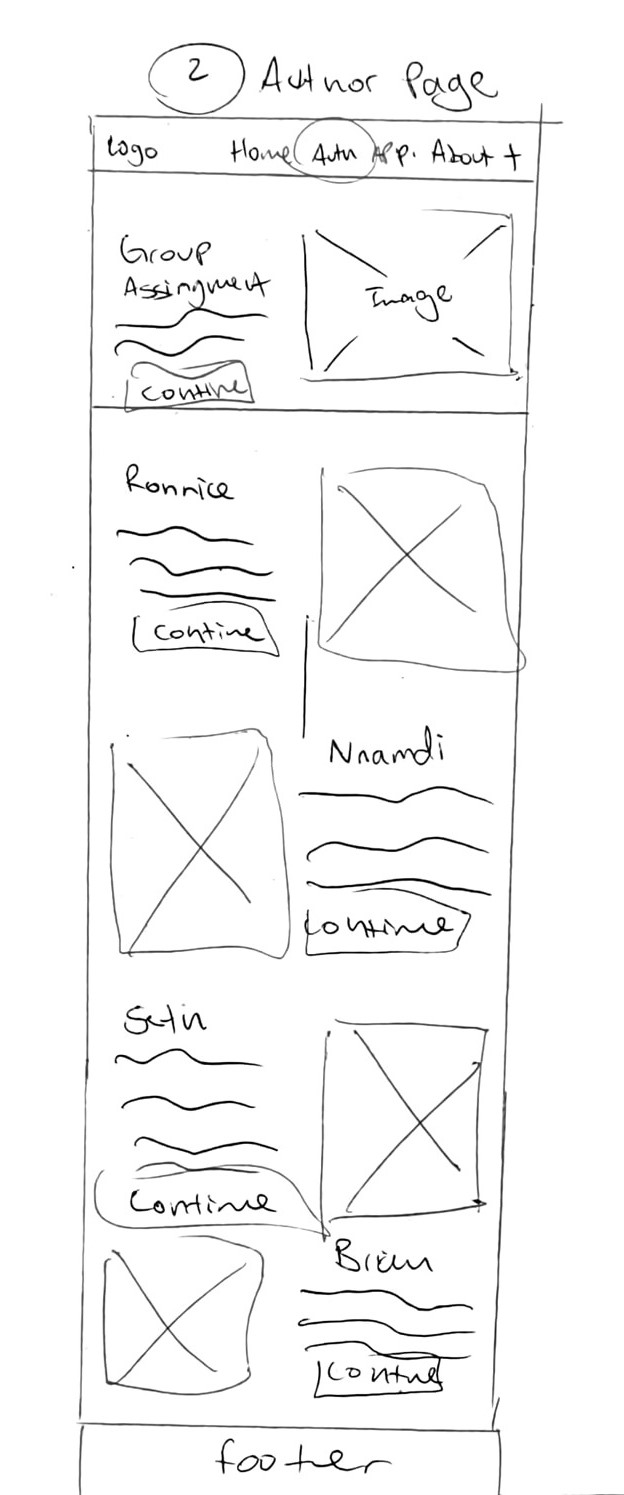 2 Author Page
Logo Home Auth App. About +
Group
Assingment
Image
Contine
Ronnice
Contine
Nnamdi
Continue
Setin
Continue
Brian
Contine
footer